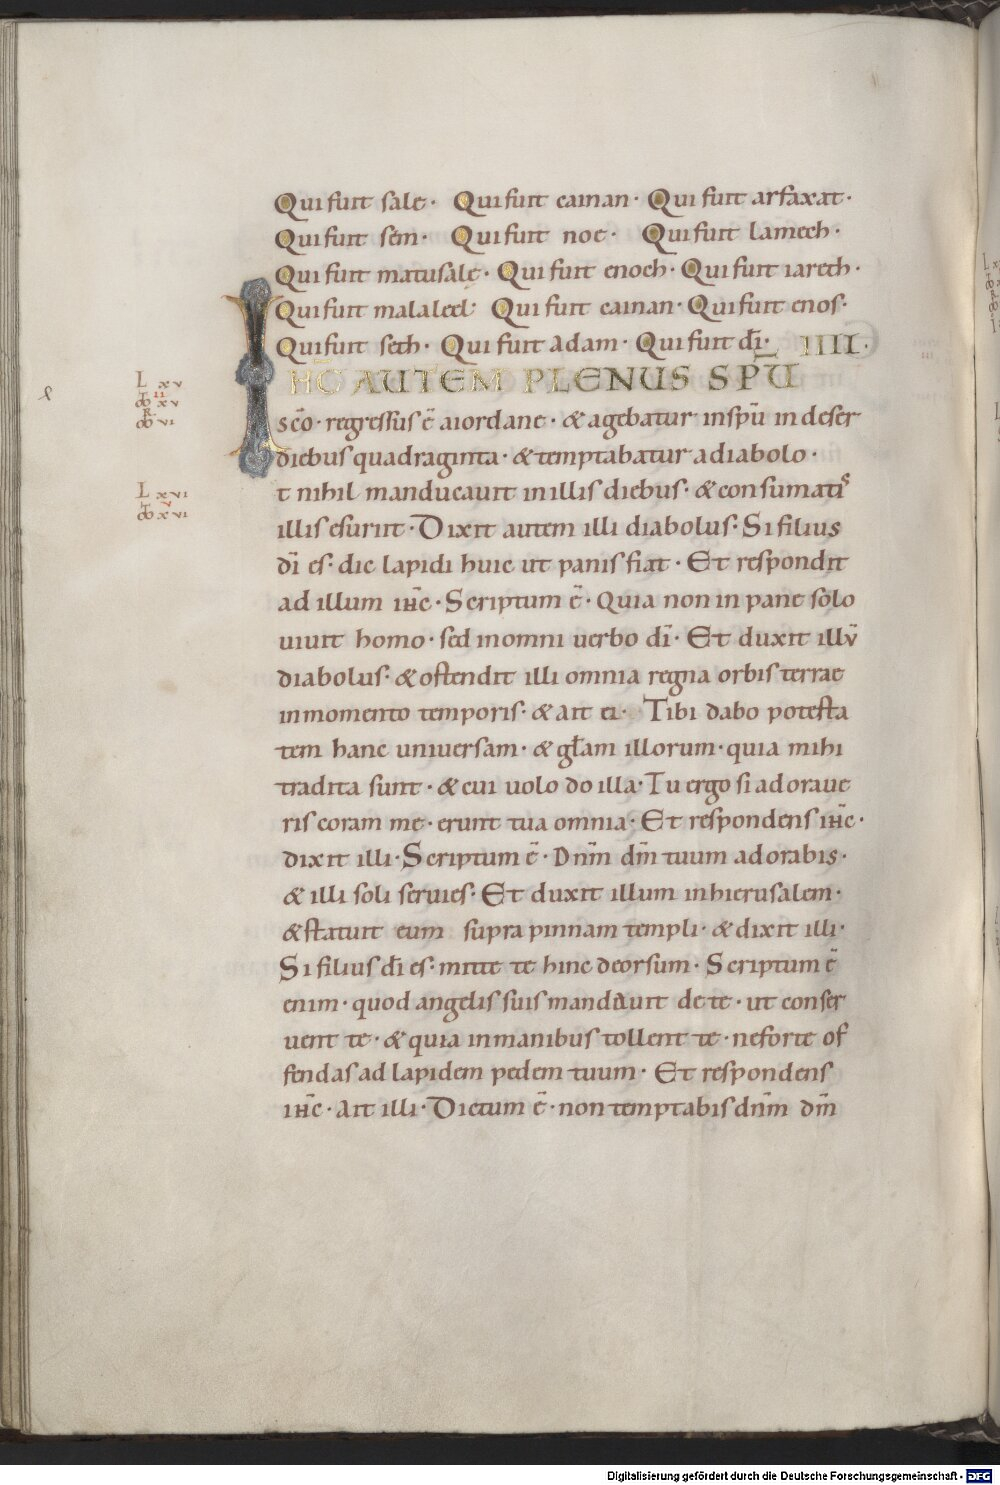 Qui fuit sale · Qui fuit cainan · Qui fuit arfaxat ·
Qui fuit sem · Qui fuit noe · Qui fuit lamech ·
Qui fuit matusale · Qui fuit enoch · Qui fuit iareth ·
Qui fuit malaleel · Qui fuit cainan · Qui fuit enos ·
Qui fuit seth · Qui fuit adam · Qui fuit dī · IIII ·
IHC̄ AUTEM PLENUS SPŪ
L xv
II
xv
R
vi
scō · regressus ē aiordane · & agebatur inspū in deser
diebus quadraginta · & temptabatur a diabolo ·
L xvi
v
xvi
t nihil manducauit in illis diebus · & consumatis
illis esuriit · Dixit autem illi diabolus · Si filius
dī es · dic lapidi huic ut panis fiat · Et respondit
ad illum ihc̄ · Scriptum ē · Quia non in pane solo
uiuit homo · sed inomni uerbo dī · Et duxit illū
diabolus · & ostendit illi omnia regna orbis terrae
inmomento temporis · & ait ei · Tibi dabo potesta
tem hanc uniuersam · & glam illorum · quia mihi
tradita sunt · & cui uolo do illa · Tu ergo si adoraue
ris coram me · erunt tua omnia · Et respondens ihc̄ ·
dixit illi · Scriptum ē · Dnm̄ dm̄ tuum adorabis ·
& illi soli seruies · Et duxit illum inhierusalem ·
& statuit eum supra pinnam templi · & dixit illi ·
Si filius dī es · mitte te hinc deorsum · Scriptum ē
enim · quod angelis suis mandauit de te · ut conser
uent te · & quia inmanibus tollent te · neforte of
fendas ad lapidem pedem tuum · Et respondens
ihc̄ · Ait illi · Dictum ē · non temptabis dnm̄ dm̄
Digitalisierung gefördert durch die Deutsche Forschungsgemeinschaft - DFG